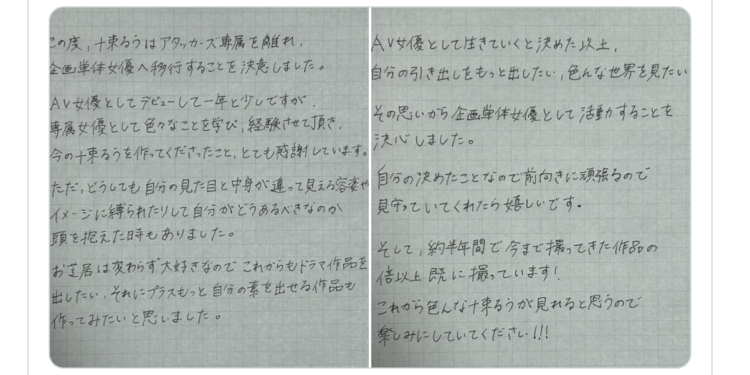 この度、十束るうはアタッカーズ専属を離れ、
企画単体女優へ移行することを決意しました。
AV女優としてデビューして一年と少しですが、
専属女優として色々なことを学び、経験させて頂き、
今の十束るうを作ってくださったこと、とても感謝しています。
ただ、どうしても自分の見た目と中身が違って見える容姿や
イメージに縛られたりして自分がどうあるべきなのか
頭を抱えた時もありました。
お芝居は変わらず大好きなのでこれからもドラマ作品を
出したい、それにプラスもっと自分の素を出せる作品も
作ってみたいと思いました。
AV女優として生きていくと決めた以上、
自分の引き出しをもっと出したい、色んな世界を見たい
その思いから企画単体女優として活動することを
決心しました。
自分の決めたことなので前向きに頑張るので
見守っていてくれたら嬉しいです。
そして、約半年間で今まで撮ってきた作品の
倍以上既に撮っています!
これから色んな十束るうが見れると思うので
楽しみにしていてください!!!